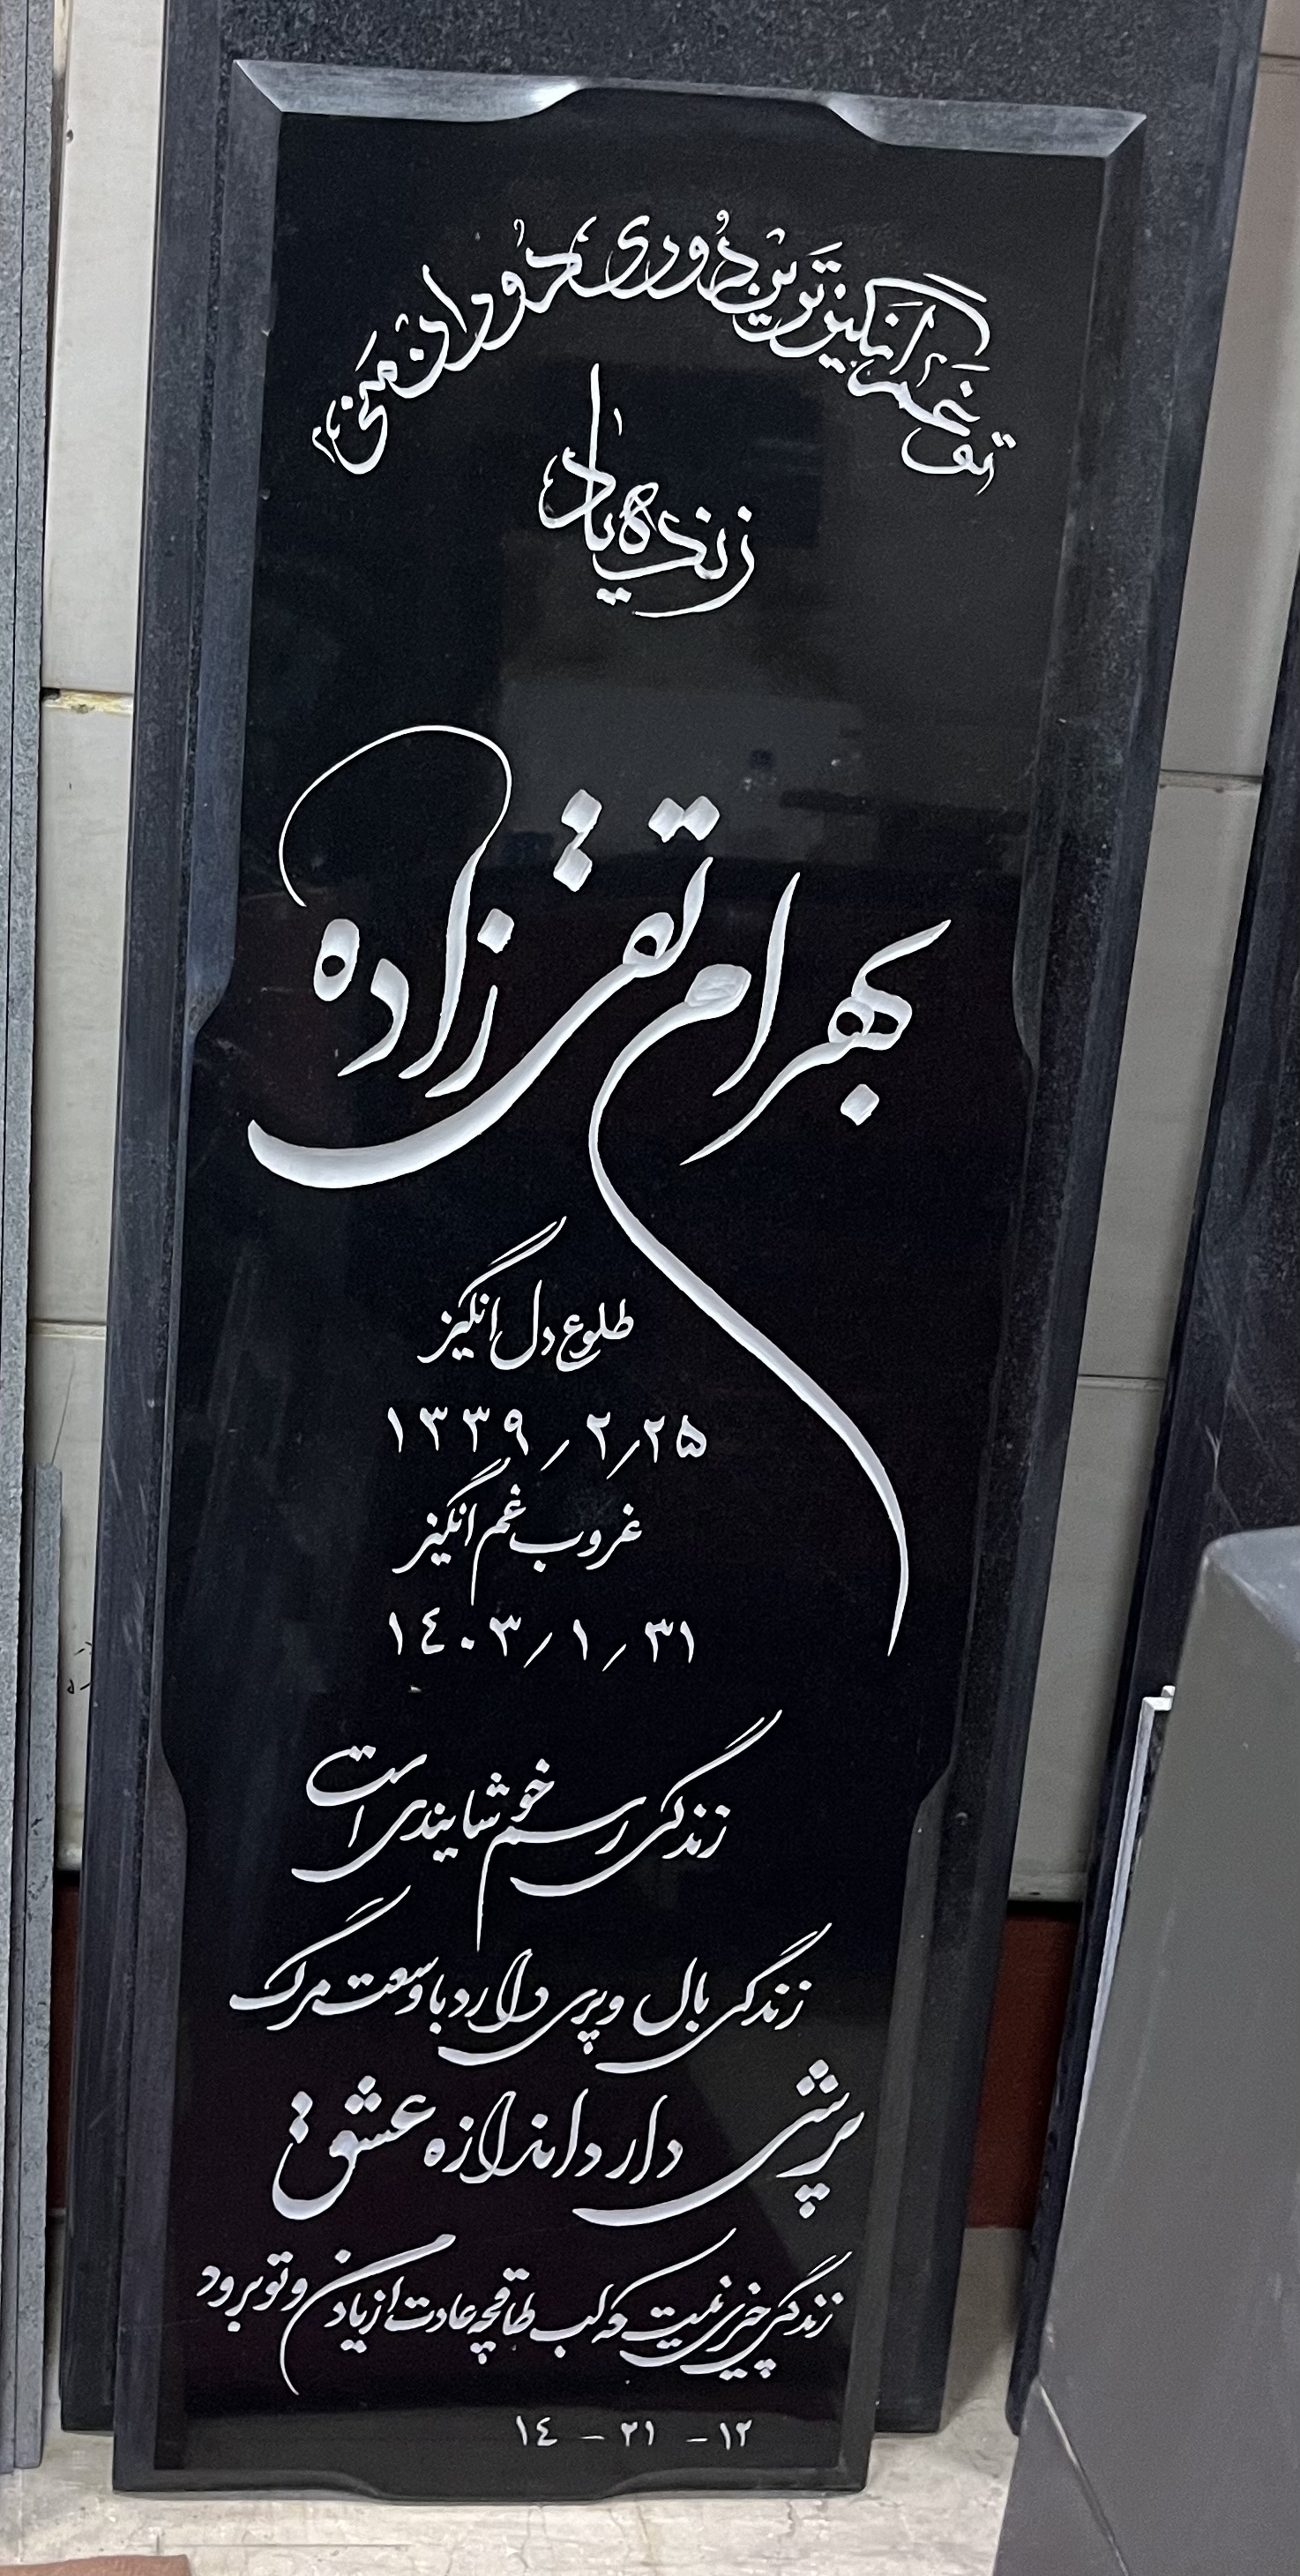 تو غم انگیزترین دوری دوران منی
زنده یاد
بهرام تقی زاده
طلوع دل انگیز
۱۳۳۹/۲/۲۵
غروب غم انگیز
۱٤۰۳/۱/۳۱
زندگی رسم خوشایندی است
زندگی بال و پری دارد با وسعت مرگ
پرشی دارد اندازه عشق
زندگی چیزی نیست که لب طاقچه عادت از یاد من و تو برود
۱٤ - ۲۱ - ۱۲